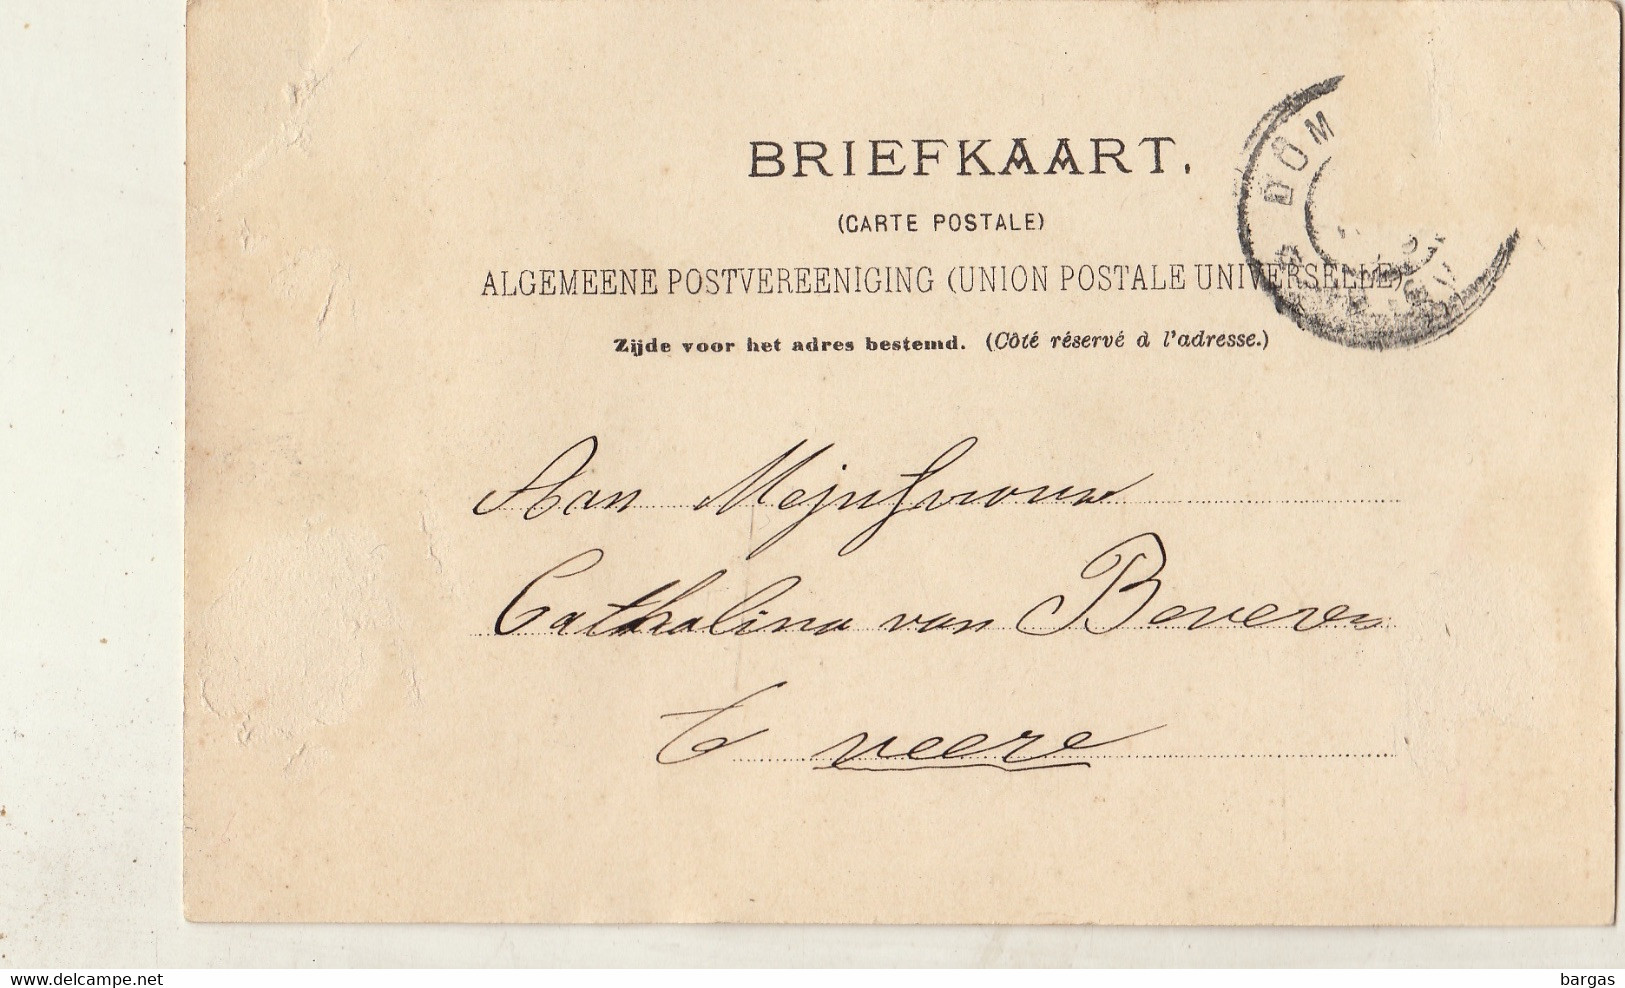 BRIEFKAART.
(CARTE POSTALE)
ALGEMEENE POSTVEREENIGING (UNION POSTALE UNIVERSELLE)
Zijde voor het adres bestemd. (Côté réservé à l'adresse.)
DOM
Aan Mejufvrouw
Cathalina van Beveren
te veere
delcampe.net
bargas